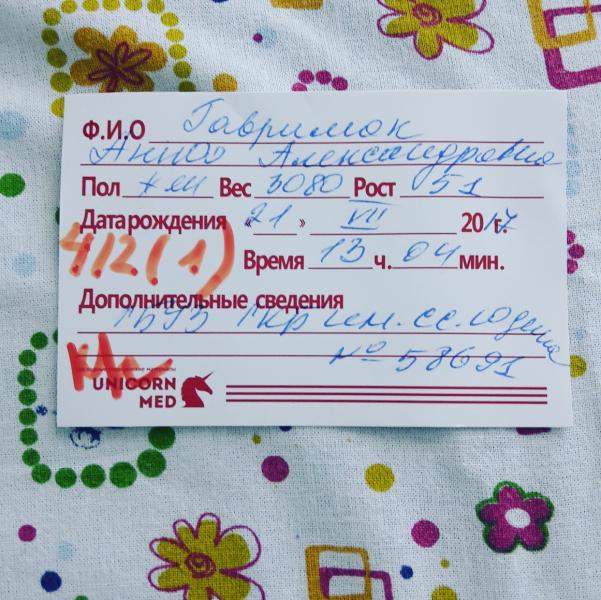 Ф.И.О Гаврилюк
Анна Александровна
Пол жен Вес 3080 Рост 51
Дата рождения «21» VII 2017г.
412.(1) Время 13 ч. 04 мин.
Дополнительные сведения
ГБУЗ ГКБ им. С.С. Юдина
№ 58691
UNICORN
MED